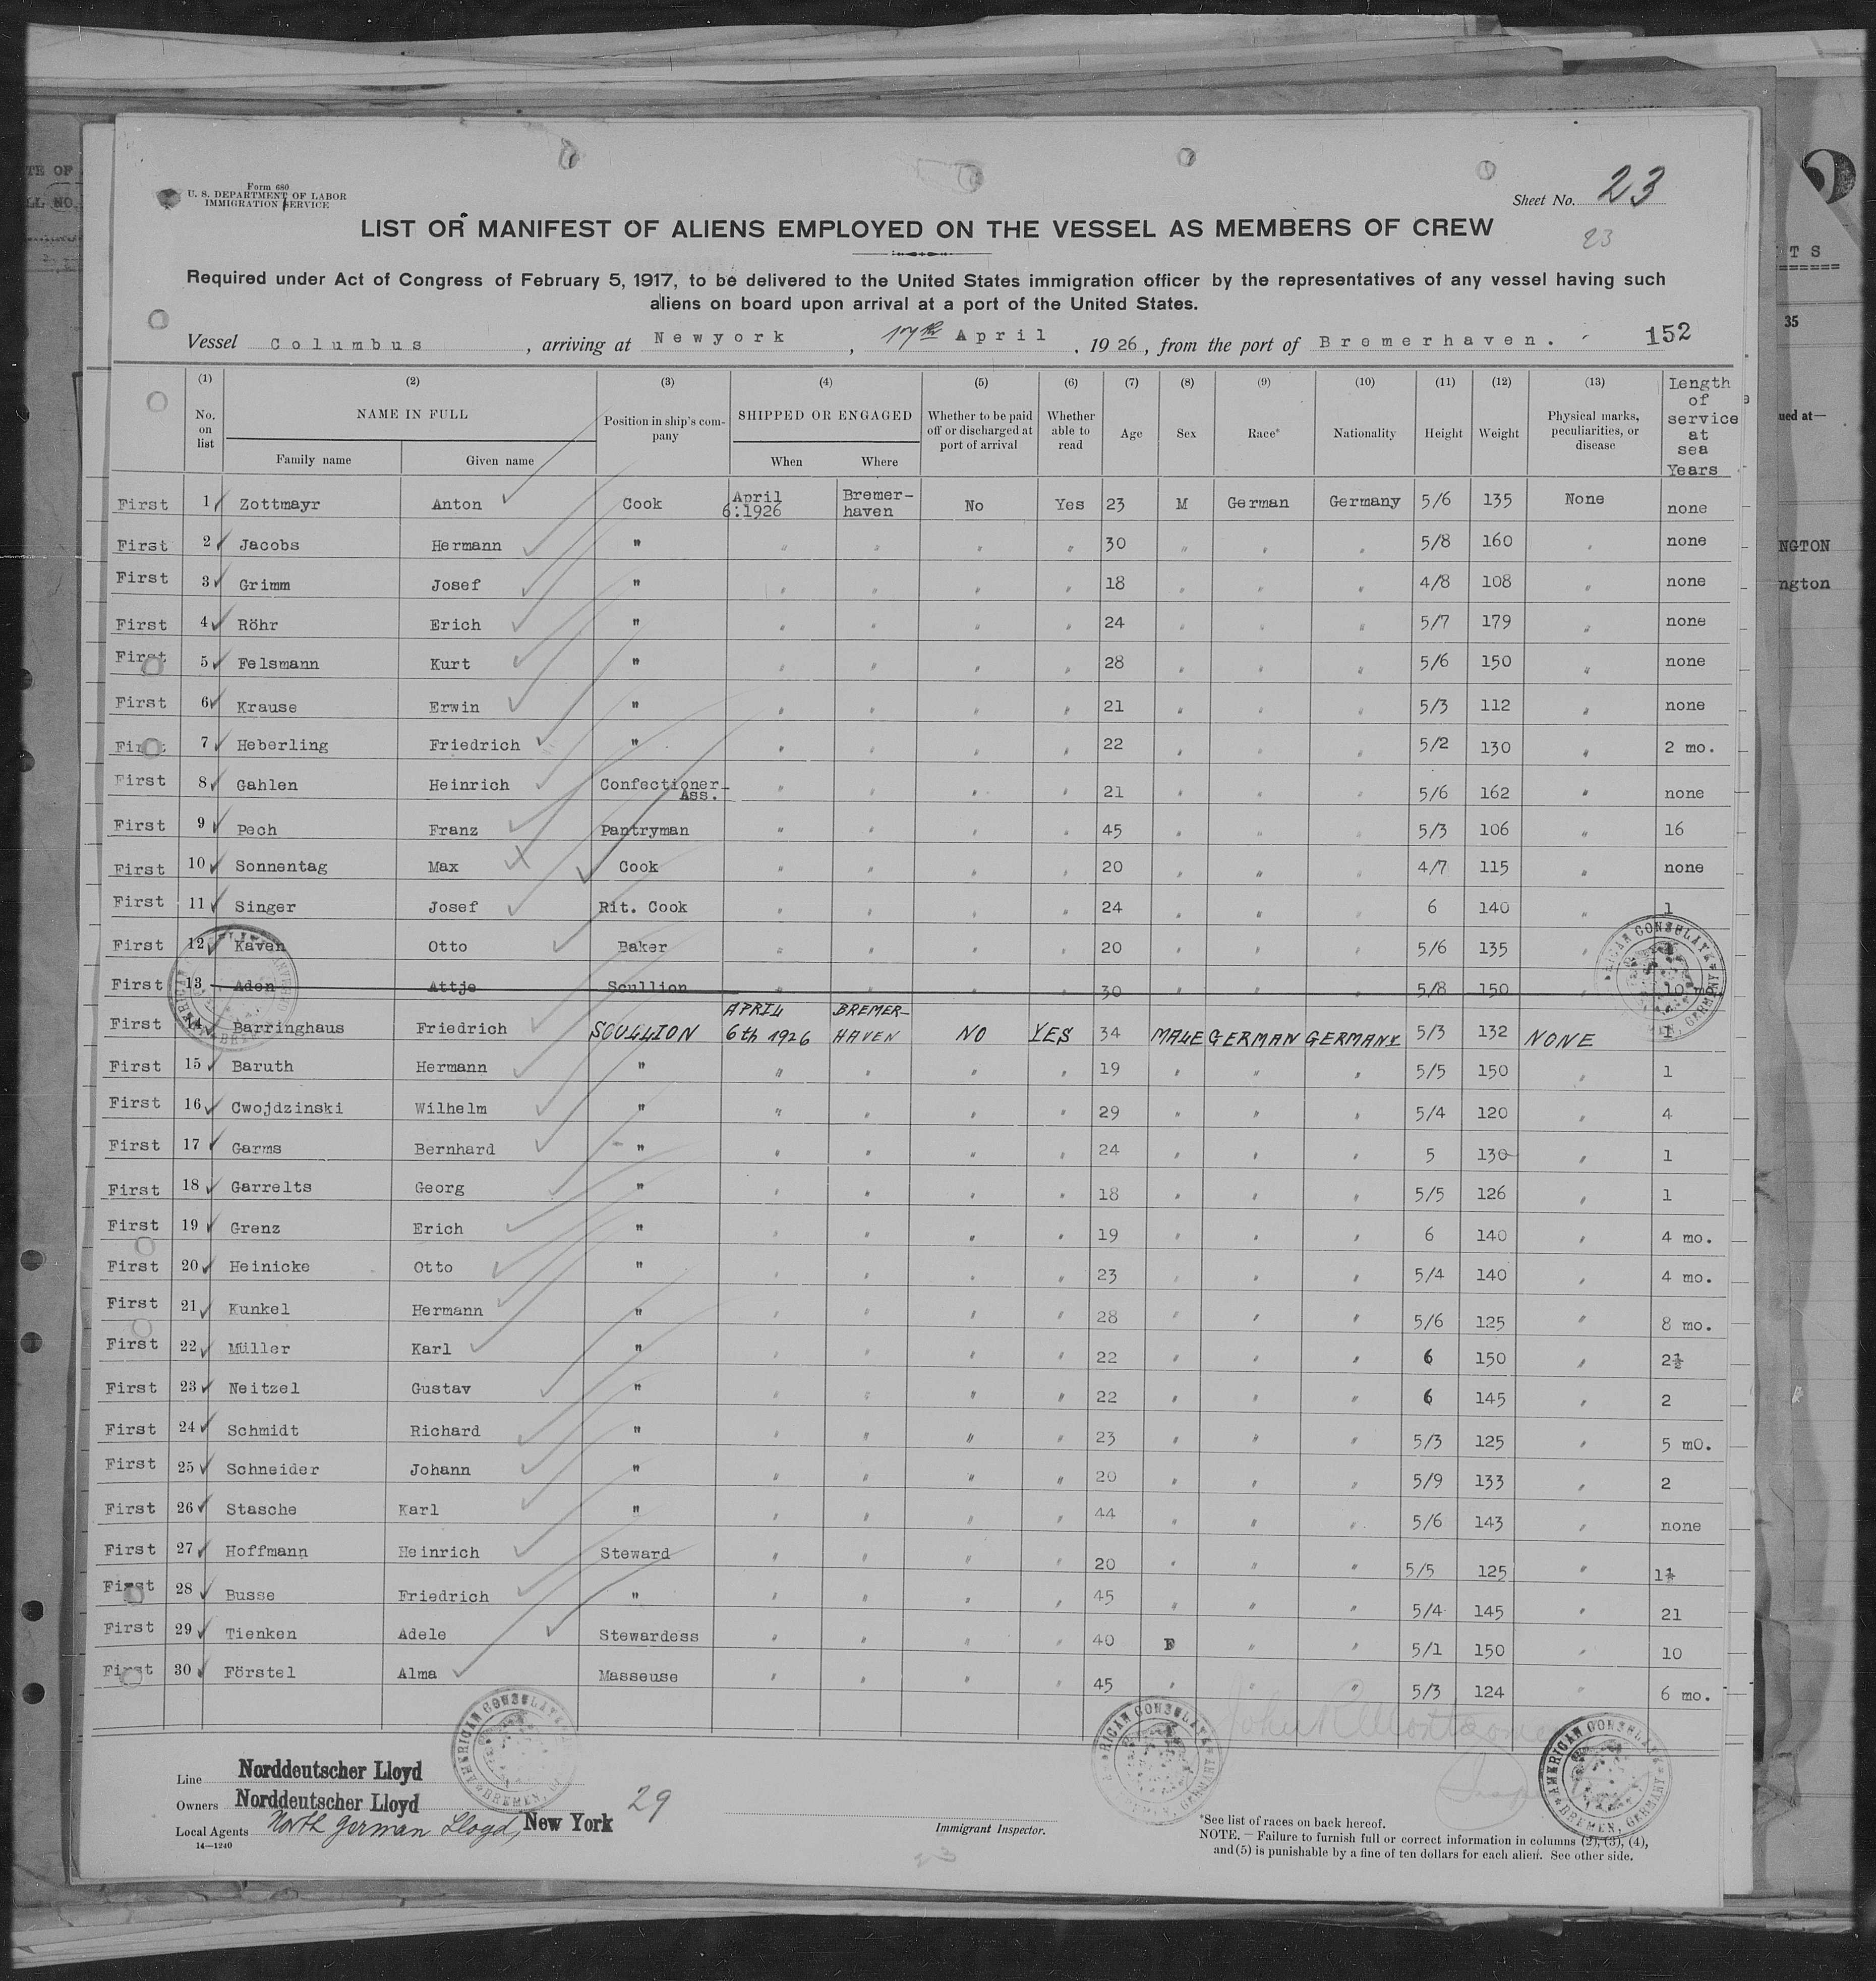 Form 680
U. S. DEPARTMENT OF LABOR
IMMIGRATION SERVICE
Sheet No. 23
LIST OR MANIFEST OF ALIENS EMPLOYED ON THE VESSEL AS MEMBERS OF CREW
23
Required under Act of Congress of February 5, 1917, to be delivered to the United States immigration officer by the representatives of any vessel having such
aliens on board upon arrival at a port of the United States.
Vessel Columbus , arriving at Newyork , 17th April , 1926 , from the port of Bremerhaven. 152
(1) (2) (3) (4) (5) (6) (7) (8) (9) (10) (11) (12) (13)
No. on list NAME IN FULL Family name Given name Position in ship's company SHIPPED OR ENGAGED When Where Whether to be paid off or discharged at port of arrival Whether able to read Age Sex Race* Nationality Height Weight Physical marks, peculiarities, or disease Length of service at sea Years
First 1 Zottmayr Anton Cook April 6:1926 Bremer-haven No Yes 23 M German Germany 5/6 135 None none
First 2 Jacobs Hermann " " " " " 30 " " " 5/8 160 " none
First 3 Grimm Josef " " " " " 18 " " " 4/8 108 " none
First 4 Röhr Erich " " " " " 24 " " " 5/7 179 " none
First 5 Felsmann Kurt " " " " " 28 " " " 5/6 150 " none
First 6 Krause Erwin " " " " " 21 " " " 5/3 112 " none
First 7 Heberling Friedrich " " " " " 22 " " " 5/2 130 " 2 mo.
First 8 Gahlen Heinrich Confectioner-Ass. " " " " 21 " " " 5/6 162 " none
First 9 Pech Franz Pantryman " " " " 45 " " " 5/3 106 " 16
First 10 Sonnentag Max Cook " " " " 20 " " " 4/7 115 " none
First 11 Singer Josef Rit. Cook " " " " 24 " " " 6 140 " 1
First 12 Kaven Otto Baker " " " " 20 " " " 5/6 135 "
First 13 Aden Attje Scullion " " " " 30 " " " 5/8 150 " 10 mo
First 14 Barringhaus Friedrich SCULLION APRIL 6th 1926 BREMER-HAVEN NO YES 34 MALE GERMAN GERMANY 5/3 132 NONE 1
First 15 Baruth Hermann " " " " " 19 " " " 5/5 150 " 1
First 16 Cwojdzinski Wilhelm " " " " " 29 " " " 5/4 120 " 4
First 17 Garms Bernhard " " " " " 24 " " " 5 130 " 1
First 18 Garrelts Georg " " " " " 18 " " " 5/5 126 " 1
First 19 Grenz Erich " " " " " 19 " " " 6 140 " 4 mo.
First 20 Heinicke Otto " " " " " 23 " " " 5/4 140 " 4 mo.
First 21 Kunkel Hermann " " " " " 28 " " " 5/6 125 " 8 mo.
First 22 Müller Karl " " " " " 22 " " " 6 150 " 2½
First 23 Neitzel Gustav " " " " " 22 " " " 6 145 " 2
First 24 Schmidt Richard " " " " " 23 " " " 5/3 125 " 5 mO.
First 25 Schneider Johann " " " " " 20 " " " 5/9 133 " 2
First 26 Stasche Karl " " " " " 44 " " " 5/6 143 " none
First 27 Hoffmann Heinrich Steward " " " " 20 " " " 5/5 125 "
First 28 Busse Friedrich " " " " " 45 " " " 5/4 145 " 21
First 29 Tienken Adele Stewardess " " " " 40 F " " 5/1 150 " 10
First 30 Förstel Alma Masseuse " " " " 45 " " " 5/3 124 " 6 mo.
AMERICAN CONSULATE BREMEN, GERMANY
Line Norddeutscher Lloyd
Owners Norddeutscher Lloyd
29
Local Agents North German Lloyd, New York
14—1240
Immigrant Inspector.
*See list of races on back hereof.
NOTE. — Failure to furnish full or correct information in columns (2), (3), (4),
and (5) is punishable by a fine of ten dollars for each alien. See other side.
23
TE OF
LL NO.
TS
35
ued at—
NGTON
ngton